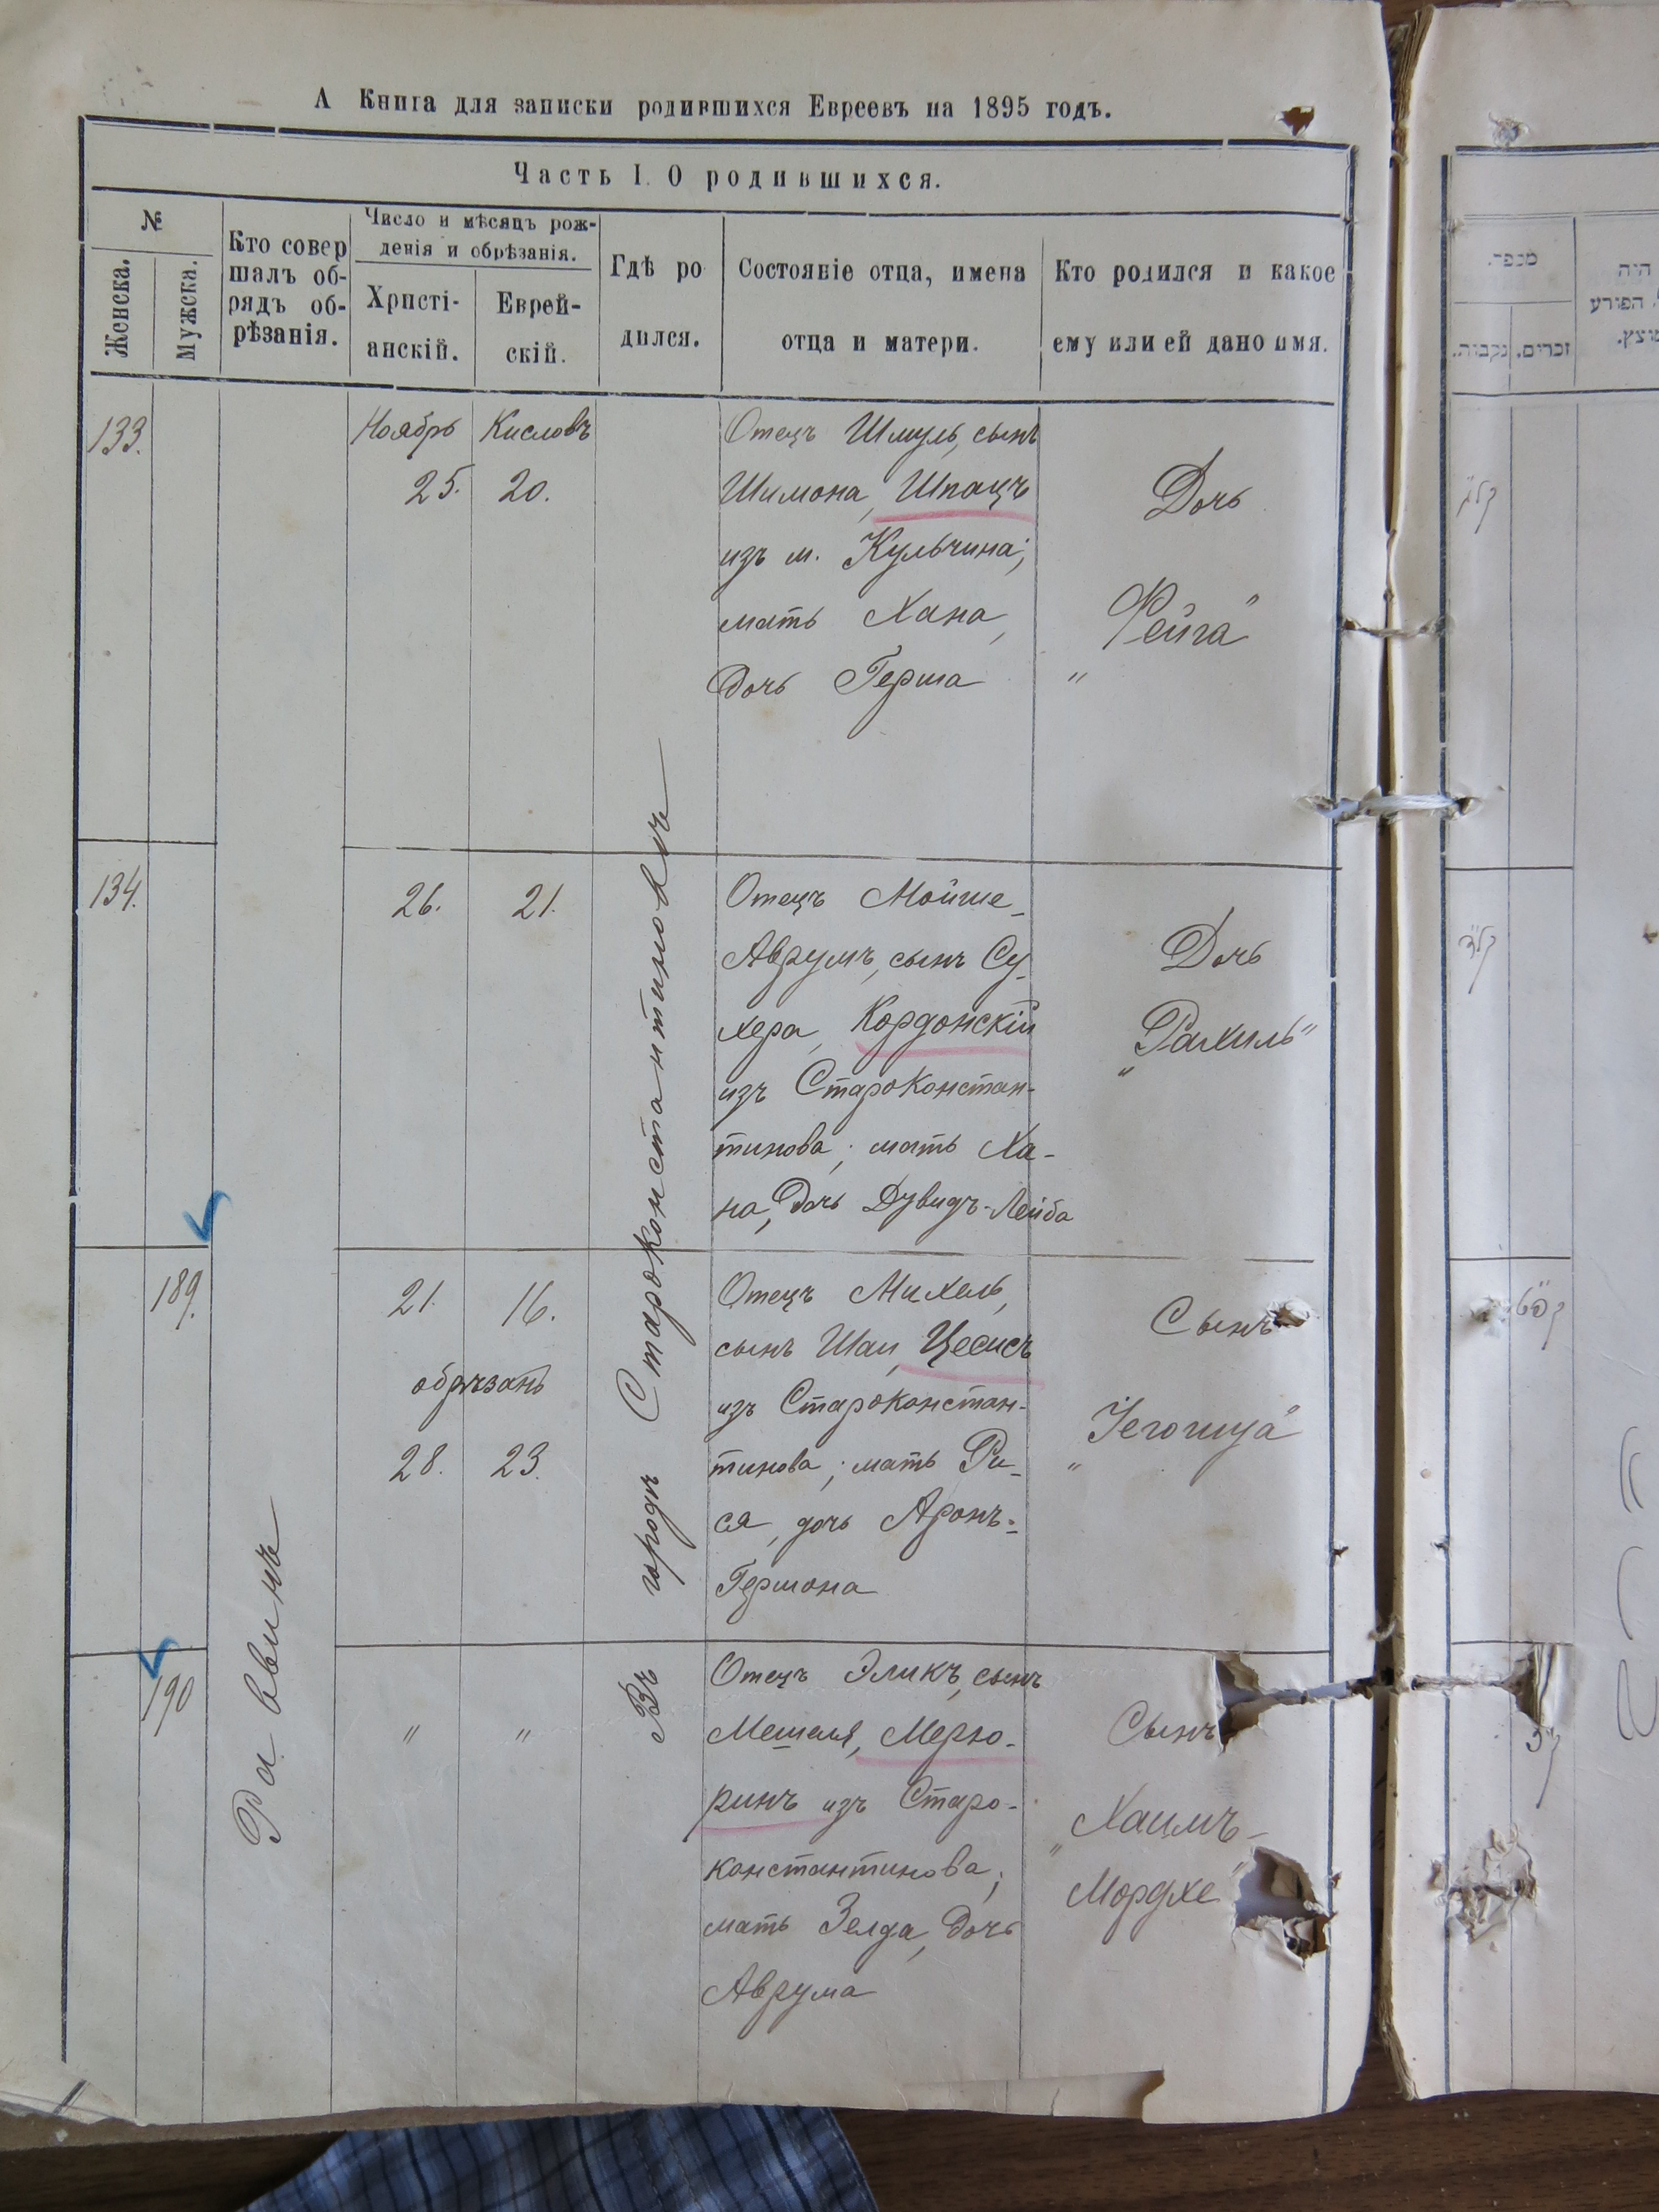 А Книга для записки родившихся Евреевъ на 1895 годъ.
Часть I. О родившихся.
№
Женска.
Мужска.
Кто совер
шалъ об-
рядъ об-
рѣзанія.
Число и мѣсяцъ рож-
денія и обрѣзанія.
Христі-
анскій.
Еврей-
скій.
Гдѣ ро
дился.
Состояніе отца, имена
отца и матери.
Кто родился и какое
ему или ей дано имя.
133.
Ноябрь
25.
Кисловъ
20.
Отецъ Шмуль, сынъ
Шимона, Шпацъ
изъ м. Кульчина;
мать Хана,
дочь Герша
Дочь
„Фейга"
134.
26.
21.
Отецъ Мойше-
Аврумъ, сынъ Су-
хера, Кордонскій
изъ Староконстан-
тинова; мать Ха-
на, дочь Дувидъ-Лейба
Дочь
„Рахиль"
189.
21.
16.
обрѣзанъ
28.
23.
Отецъ Михель,
сынъ Шаи, Цесисъ
изъ Староконстан-
тинова; мать Ри-
ся, дочь Аронъ-
Гершона
Сынъ
„Іегошуа"
190
"
"
Отецъ Эликъ, сынъ
Мешеля, Мерю-
ринъ изъ Старо-
константинова;
мать Зелда, дочь
Аврума
Сынъ
„Хаимъ-
Мордхе"
Раввинъ
Въ городѣ Староконстантиновѣ
מספר.
נקבות.
זכרים.
היה
הפורע
קל"ג
קל"ד
קפ"ט
ק"צ